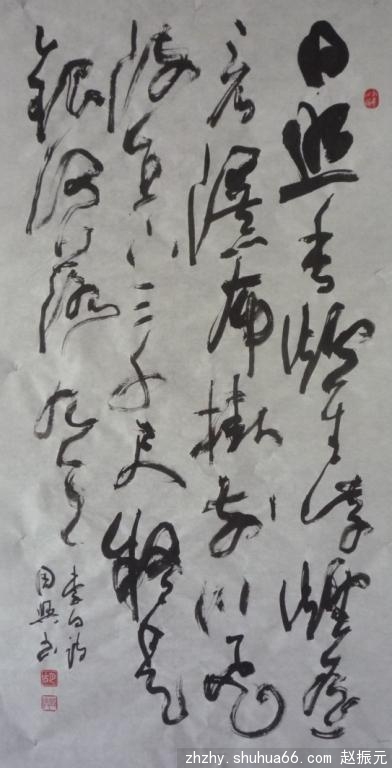 日照香爐生紫煙遥
看瀑布掛前川飛
流直下三千尺疑是
銀河落九天
李白詩
興书
zhzhy.shuhua66.com 赵振元